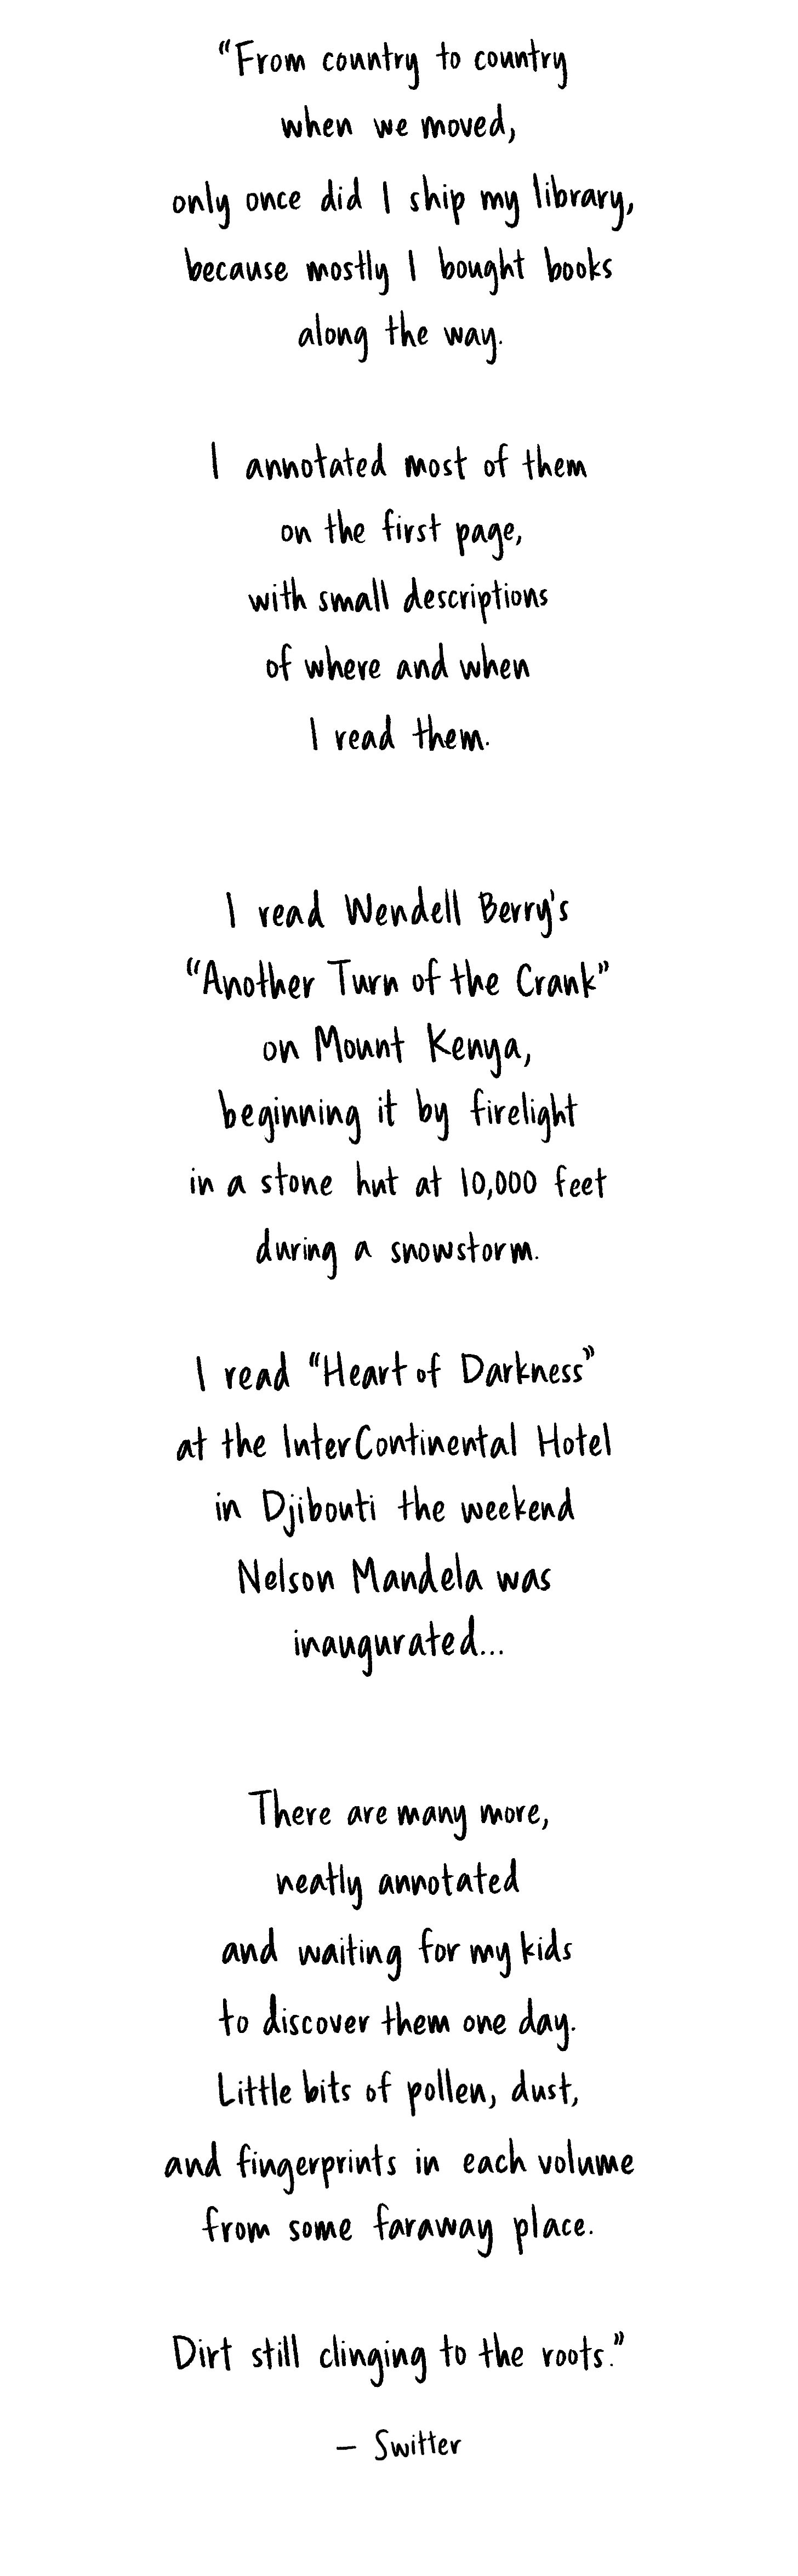 “From country to country
when we moved,
only once did I ship my library,
because mostly I bought books
along the way.
I annotated most of them
on the first page,
with small descriptions
of where and when
I read them.
I read Wendell Berry's
“Another Turn of the Crank”
on Mount Kenya,
beginning it by firelight
in a stone hut at 10,000 feet
during a snowstorm.
I read “Heart of Darkness”
at the InterContinental Hotel
in Djibouti the weekend
Nelson Mandela was
inaugurated...
There are many more,
neatly annotated
and waiting for my kids
to discover them one day.
Little bits of pollen, dust,
and fingerprints in each volume
from some faraway place.
Dirt still clinging to the roots.”
– Switter